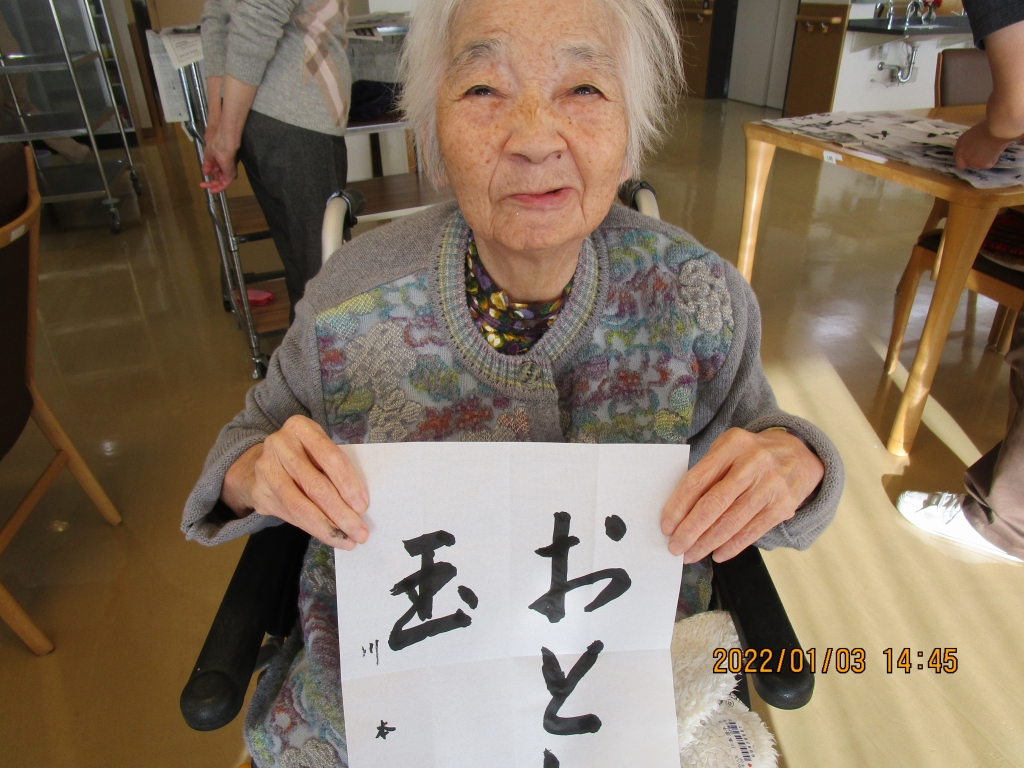 おと
玉
川本
2022/01/03 14:45